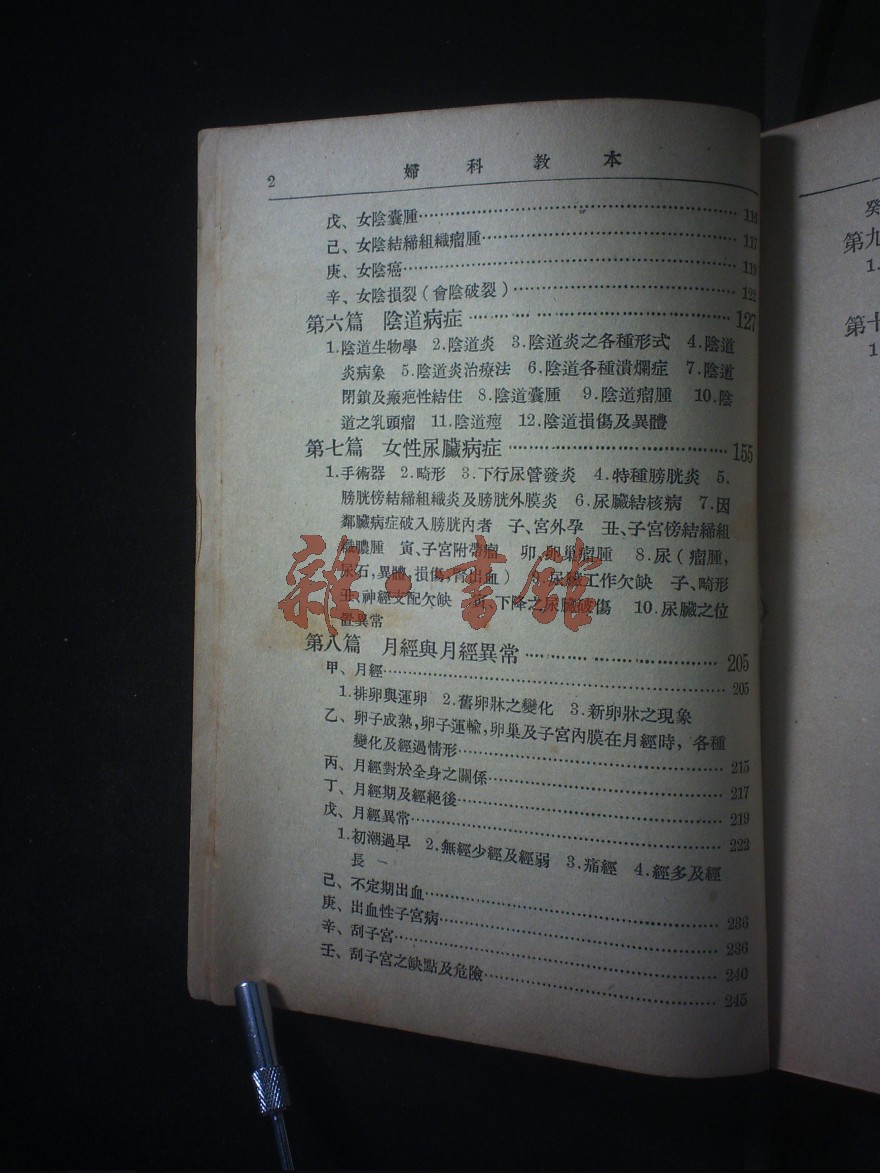 2 婦科教本
戊、女陰囊腫
己、女陰結締組織瘤腫 117
庚、女陰癌 119
辛、女陰損裂(會陰破裂) 122
第六篇 陰道病症 127
1.陰道生物學 2.陰道炎 3.陰道炎之各種形式 4.陰道
炎病象 5.陰道炎治療法 6.陰道各種潰爛症 7.陰道
閉鎖及瘢疤性結住 8.陰道囊腫 9.陰道瘤腫 10.陰
道之乳頭瘤 11.陰道痙 12.陰道損傷及異體
第七篇 女性尿臟病症 155
1.手術器 2.畸形 3.下行尿管發炎 4.特種膀胱炎 5.
膀胱傍結締組織炎及膀胱外膜炎 6.尿臟結核病 7.因
鄰臟病症破入膀胱內者 子、宮外孕 丑、子宮傍結締組
織膿腫 寅、子宮附帶瘤 卯、卵巢瘤腫 8.尿(瘤腫,
尿石,異體,損傷,腎出血) 9.尿臟工作欠缺 子、畸形
丑、神經支配欠缺 寅、下降之尿臟破傷 10.尿臟之位
置異常
第八篇 月經與月經異常 205
甲、月經 205
1.排卵與運卵 2.舊卵牀之變化 3.新卵牀之現象
乙、卵子成熟,卵子運輸,卵巢及子宮內膜在月經時,各種
變化及經過情形 215
丙、月經對於全身之關係 217
丁、月經期及經絕後 219
戊、月經異常 222
1.初潮過早 2.無經少經及經弱 3.痛經 4.經多及經
長
己、不定期出血 236
庚、出血性子宮病 236
辛、刮子宮 240
壬、刮子宮之缺點及危險 245
癸
第九
1.
第十
1
雜·書館